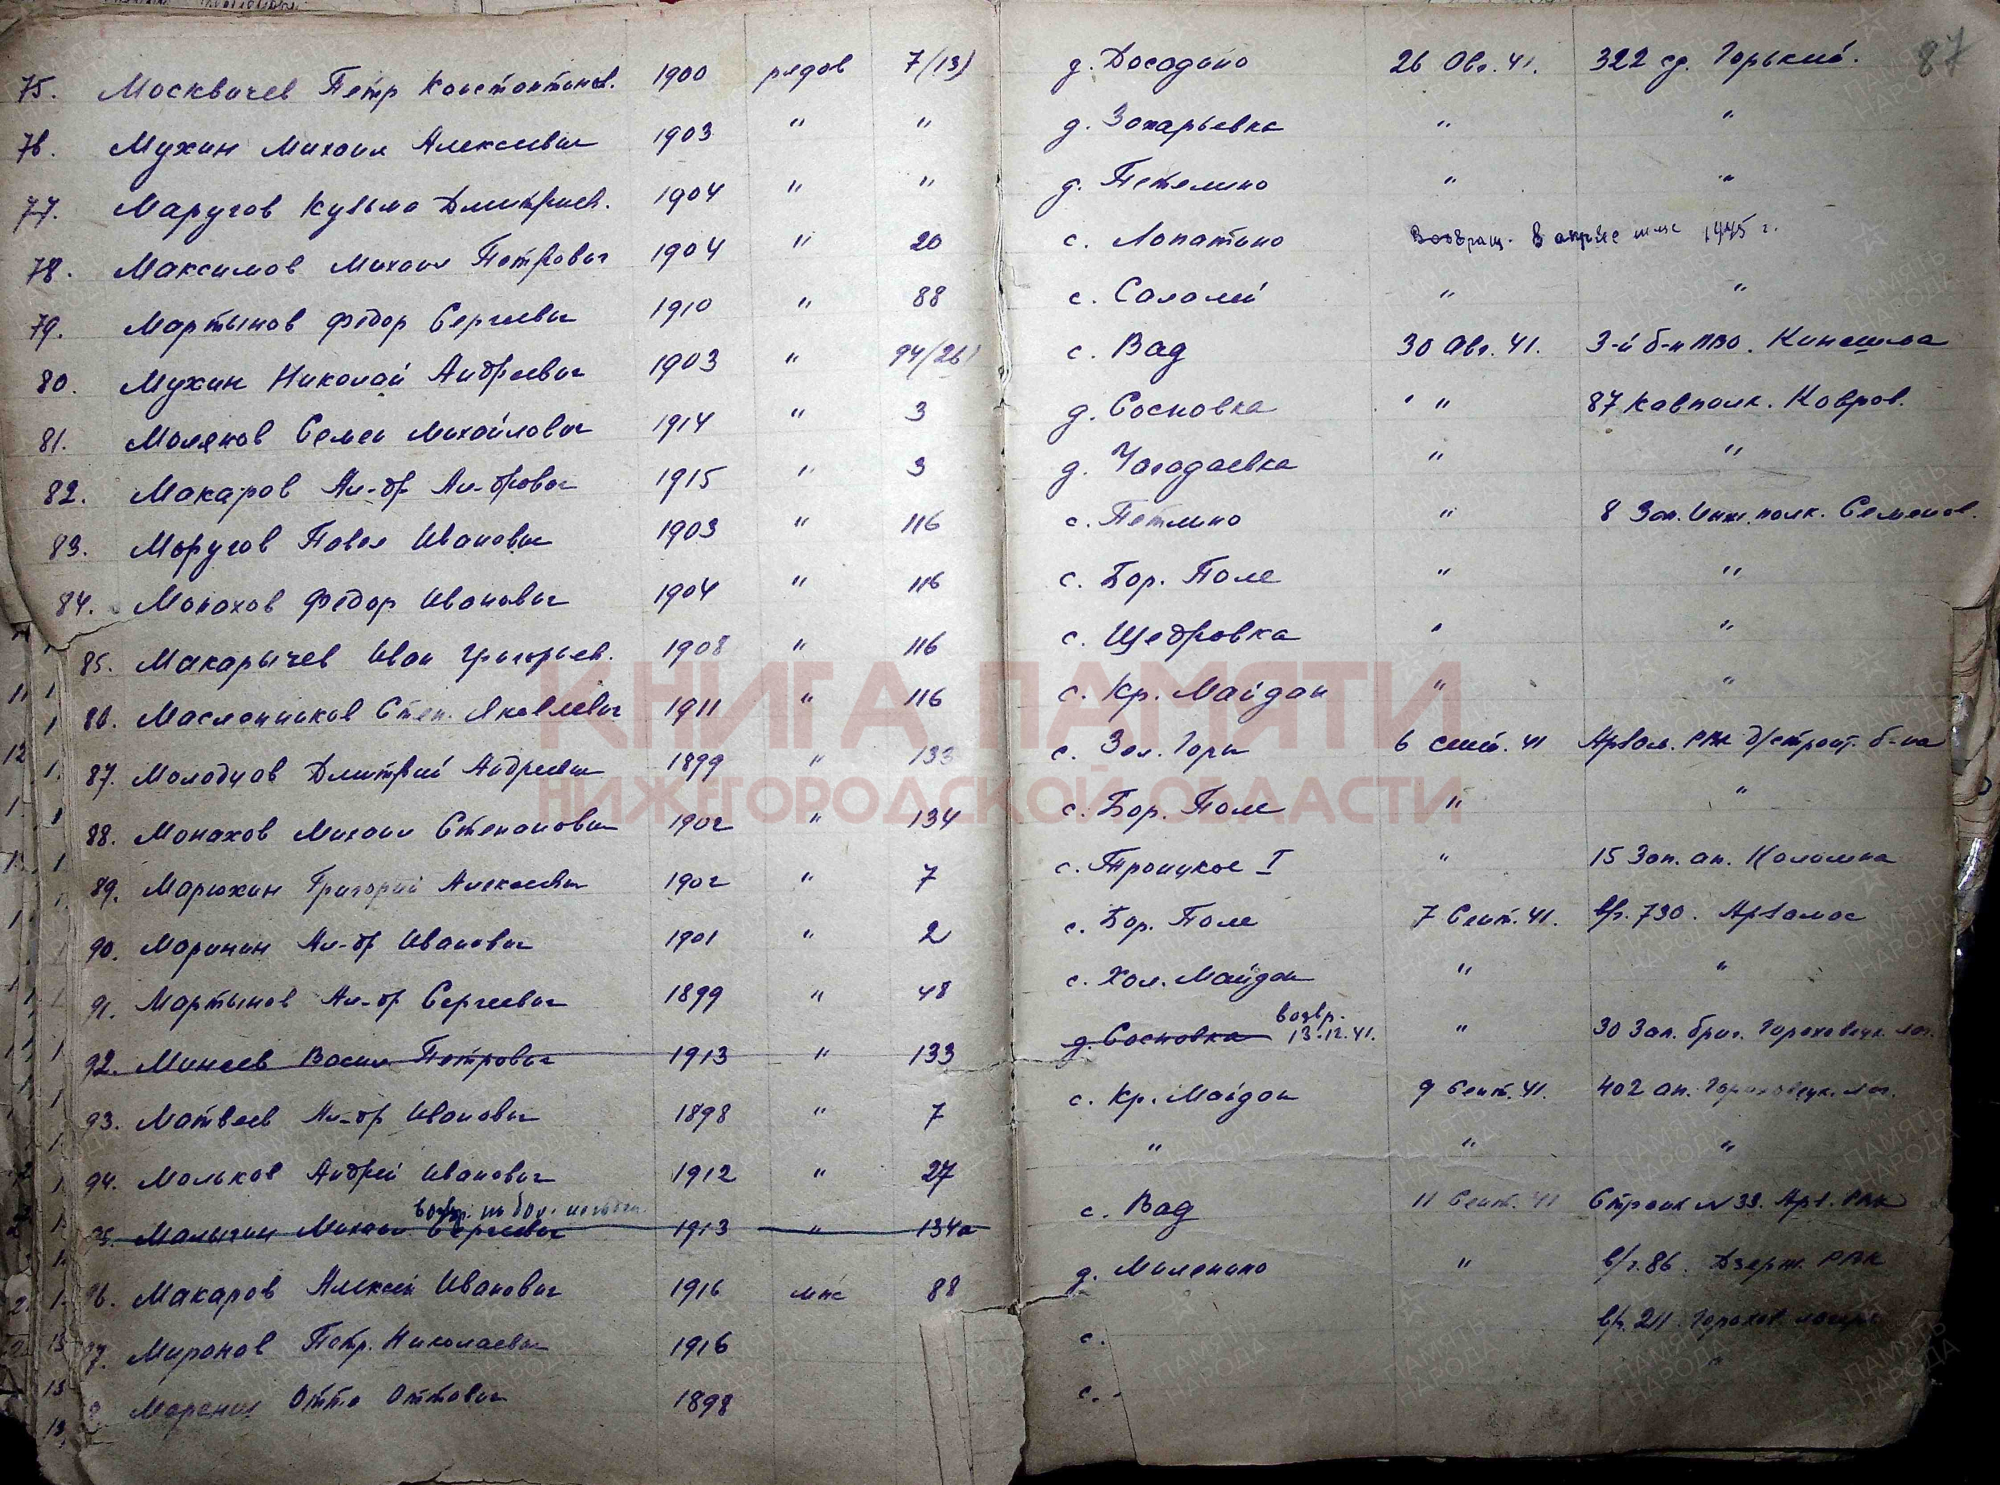 87
75. Москвичев Петр Константинов. 1900 рядов 7/13) д. Досадино 26 Авг. 41. 322 сд. Горький.
76. Мухин Михаил Алексеевич 1903 " " д. Захарьевка " "
77. Маругов Кузьма Дмитриев. 1904 " " д. Петелино " "
78. Максимов Михаил Петрович 1904 " 20 с. Лопатино Возвращ. в 1945 г.
79. Мартынов Федор Сергеевич 1910 " 88 с. Салалей " "
80. Мухин Николай Андреевич 1903 " 94/26) с. Вад 30 Авг. 41. 3-й б-н ПВО. Кинешма
81. Семен Михайлович 1914 " 3 д. Сосновка " " 87 Кавполк. Ковров.
82. Макаров Ал-др Ал-дрович 1915 " 3 д. Чагодаевка " "
83. Моругов Павел Иванович 1903 " 116 с. Петлино " 8 Зап. Инж. полк. Семенов.
84. Монахов Федор Иванович 1904 " 116 с. Бор. Поле " "
85. Макарычев Иван Григорьев. 1908 " 116 с. Щедровка " "
86. Масленников Степ. Яковлевич 1911 " 116 с. Кр. Майдан " "
87. Молодцов Дмитрий Андреевич 1899 " 133 с. Зел. Горы 6 сент. 41 Арзам. РВК д/строит. б-на
88. Монахов Михаил Степанович 1902 " 134 с. Бор. Поле " "
89. Марюхин Григорий Алексеевич 1902 " 7 с. Троицкое I " 15 Зап. ап. Коломна
90. Маринин Ал-др Иванович 1901 " 2 с. Бор. Поле 7 Сент. 41. в/ч. 730. Арзамас
91. Мартынов Ал-др Сергеевич 1899 " 48 с. Хол. Майдан " "
92. Минеев Васил Петрович 1913 " 133 д. Сосновка возвр. 13.12.41. " 30 Зап. бриг. Гороховецк. лаг.
93. Матвеев Ал-др Иванович 1898 " 7 с. Кр. Майдан 9 Сент. 41. 402 ап. Гороховецк. лаг.
94. Мальков Андрей Иванович 1912 " 27 " " "
возвр. по бол.
95. Малыгин Михаил Сергеевич 1913 " 134а с. Вад 11 Сент. 41 Строит N 33. Арз. РВК
96. Макаров Алексей Иванович 1916 мнс 88 д. Миленино " в/ч. 86. Дзерж. РВК
97. Миронов Петр. Николаевич 1916 с. в/ч. 211. Горохов. лагерь
Отто Оттович 1898 с. "
КНИГА ПАМЯТИ
НИЖЕГОРОДСКОЙ ОБЛАСТИ
ПАМЯТЬ НАРОДА